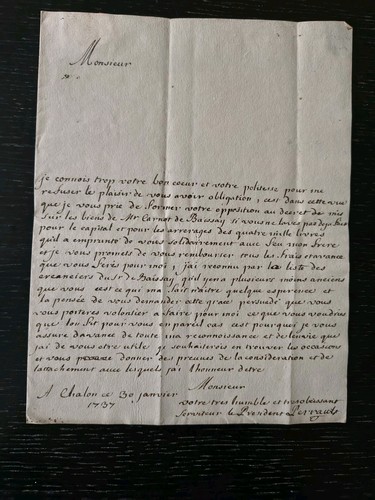 Monsieur
je connois trop votre bon coeur et votre politesse pour me
refuser le plaisir de vous avoir obligation, cest dans cette vue
que je vous prie de former votre opposition au decret de mis
sur les biens de Mr Carnot de Baissay si vous ne laves pas deja fait
pour le capital et pour les arrerages des quatre mille livres
quil a emprunté de vous solidairement avec feu mon frere
et je vous promets de vous rembourser tous les frais et avance
que vous ferés pour moi, j'ai reconnu par la liste des
creanciers du Sr de Baissay quil y en a plusieurs moins anciens
que vous cest ce qui ma fait naitre quelque esperence et
la pensée de vous demander cette grace persuadé que vous
vous porteres volontier a faire pour moi ce que vous voudries
que lon fit pour vous en pareil cas cest pourquoi je vous
assure davance de toute ma reconnoissance et de lenvie que
jai de vous etre utile je souhaiterois en trouver les occasions
et vous donner des preuves de la consideration et de
lattachement avec lesquels jai lhonneur detre
Monsieur
A Chalon ce 30 janvier
1737
votre tres humble et tres obeissant
serviteur le President Perrault